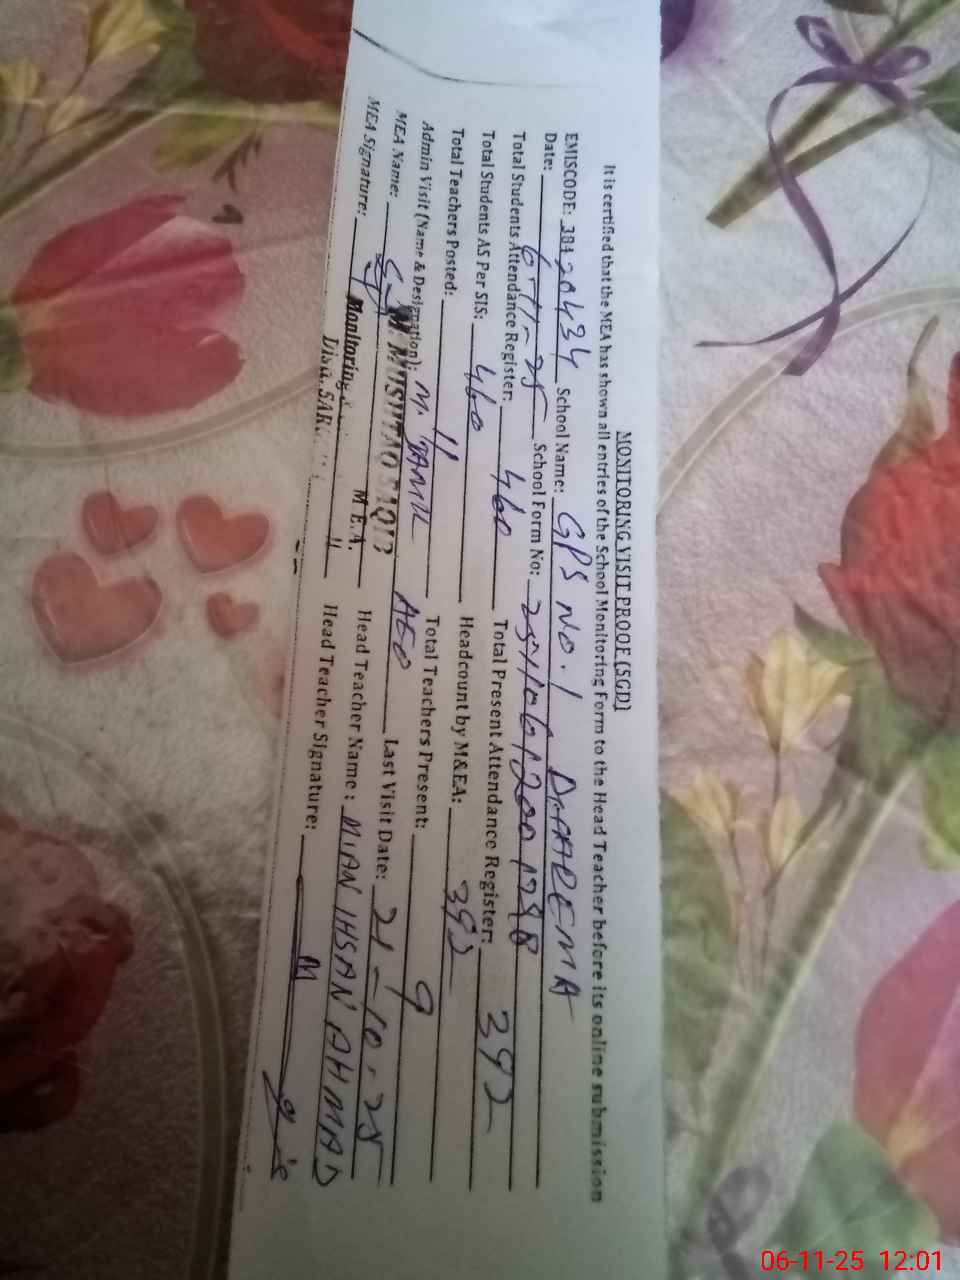 MONITORING VISIT PROOF (SGD)
It is certified that the MEA has shown all entries of the School Monitoring Form to the Head Teacher before its online submission
EMISCODE: 38420434 School Name: GPS NO. 1 DHAREMA
Date: 6-11-25 School Form No:
Total Students Attendance Register: 460 Total Present Attendance Register: 392
Total Students AS Per SIS: 460 Headcount by M&EA: 392
Total Teachers Posted: 11 Total Teachers Present: 9
Admin Visit (Name & Designation): M. JAMIL AEO Last Visit Date: 21-10-25
MEA Name: Head Teacher Name: MIAN IHSAN AHMAD
MEA Signature: Head Teacher Signature:
M. MUSHTAQ
M.E.A.
Monitoring &
06-11-25 12:01